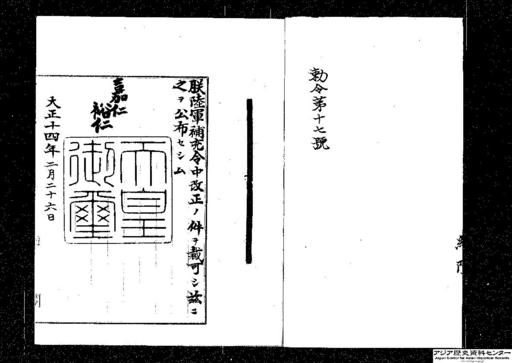 勅令第十七號
朕陸軍補充令中改正ノ件ヲ裁可シ茲ニ
之ヲ公布セシム
嘉仁
裕仁
天皇
御璽
大正十四年二月二十六日
アジア歴史資料センター
Japan Center for Asian Historical Records